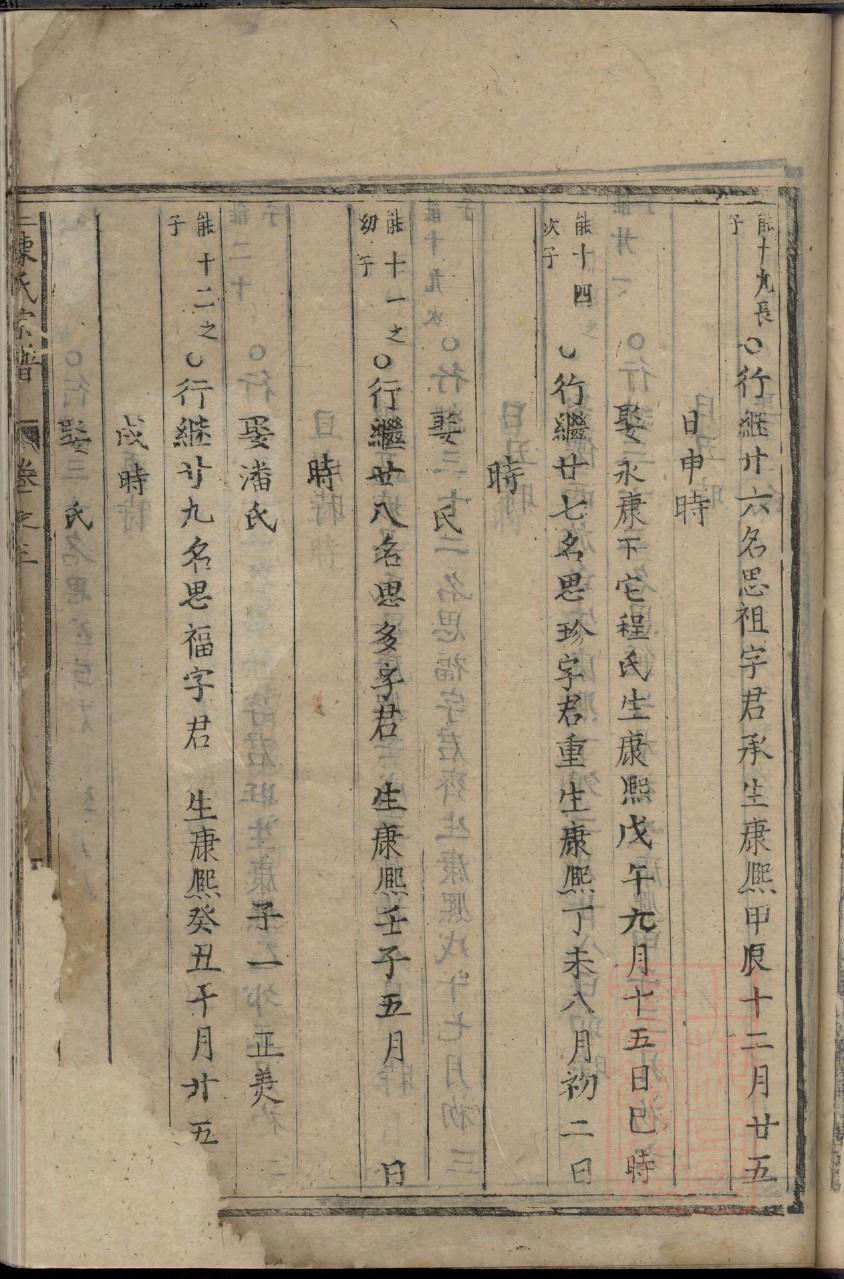 能十九長子○行継廿六名思祖字君承生康熙甲辰十二月廿五
日申時
娶永康下宅程氏生康熙戊午九月十五日巳時
能十四次子○行繼廿七名思珍字君重生康熙丁未八月初二日
時
娶 氏
能十一之幼子○行繼廿八名思多字君 生康熙壬子五月 日
時
娶潘氏 子一 正美
能十二之子○行継廿九名思福字君 生康熙癸丑十月廿五
戌時
娶 氏
陳氏宗譜 卷之三